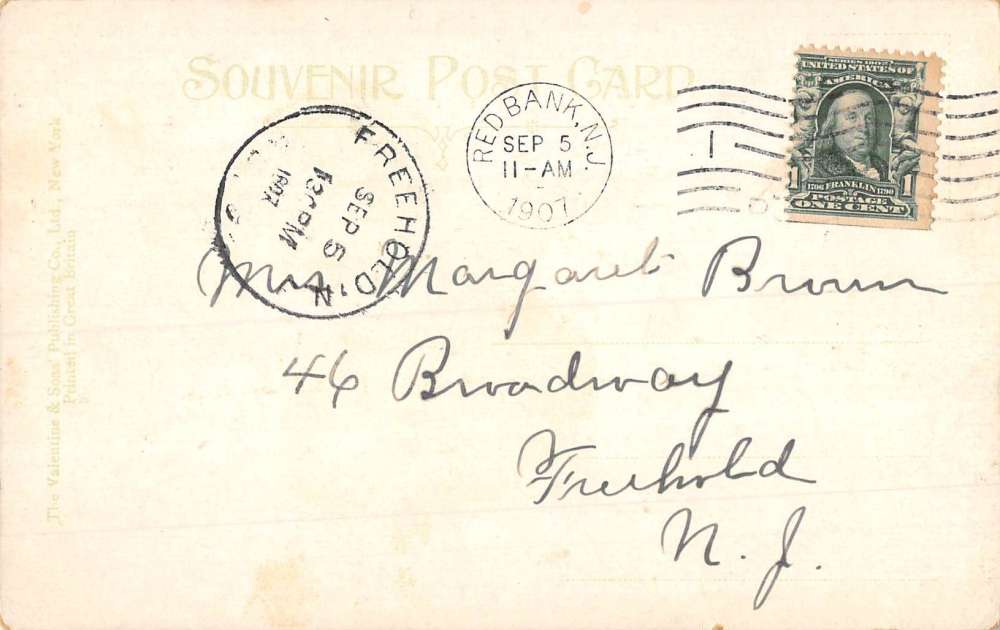 SOUVENIR POST CARD
SERIES 1902
UNITED STATES OF
AMERICA
1706 FRANKLIN 1790
1 POSTAGE 1
ONE CENT
RED BANK, N.J.
SEP 5
11-AM
1907
1
FREEHOLD, N
SEP 5
130PM
1907
Mrs Margaret Brown
46 Broadway
Freehold
N. J.
The Valentine & Sons' Publishing Co., Ltd., New York
Printed in Great Britain